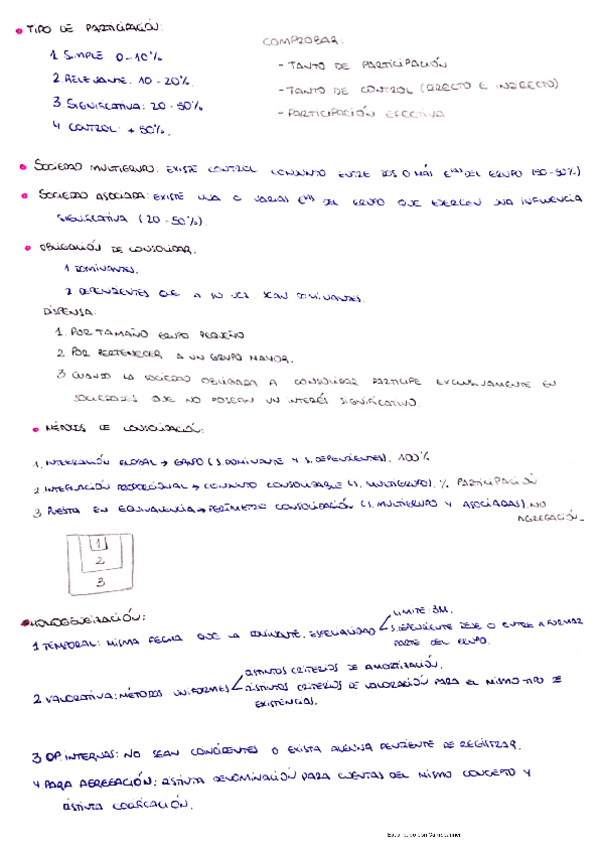 • TIPO DE PARTICIPACIÓN:
COMPROBAR:
1 SIMPLE 0-10%
- TANTO DE PARTICIPACIÓN
2. RELEVANTE: 10-20%
- TANTO DE CONTROL (DIRECTO E INDIRECTO)
3 SIGNIFICATIVA: 20-50%
- PARTICIPACIÓN EFECTIVA
4 CONTROL: + 50%.
• SOCIEDAD MULTIGRUPO: EXISTE CONTROL CONJUNTO ENTRE DOS O MÁS DEL GRUPO
• SOCIEDAD ASOCIADA: EXISTE UNA O VARIAS DEL GRUPO QUE EJERCEN UNA INFLUENCIA
SIGNIFICATIVA (20-50%).
• OBLIGACIÓN DE CONSOLIDAR.
1 DOMINANTES.
2 DEPENDIENTES QUE A SU VEZ SEAN DOMINANTES.
DISPENSA:
1. POR TAMAÑO: GRUPO PEQUEÑO
2. POR PERTENECER A UN GRUPO MAYOR.
3 CUANDO LA SOCIEDAD OBLIGADA A CONSOLIDAR PARTICIPE EXCLUSIVAMENTE EN
SOCIEDADES QUE NO POSEAN UN INTERÉS SIGNIFICATIVO.
• MÉTODOS DE CONSOLIDACIÓN:
1. INTEGRACIÓN GLOBAL → GRUPO (S. DOMINANTE Y S. DEPENDIENTES). 100%
2 INTEGRACIÓN PROPORCIONAL → CONJUNTO CONSOLIDABLE (S. MULTIGRUPO). % PARTICIPACIÓN
3 PUESTA EN EQUIVALENCIA → PERÍMETRO CONSOLIDACIÓN (S. MULTIGRUPO Y ASOCIADAS). NO
AGREGACIÓN
1
2
3
• HOMOGENEIZACIÓN:
LIMITE: 3M.
1 TEMPORAL: MISMA FECHA QUE LA DOMINANTE. ESPECIALIDAD S. DEPENDIENTE DEJE O ENTRE A FORMAR
PARTE DEL GRUPO.
DISTINTOS CRITERIOS DE AMORTIZACIÓN.
2. VALORATIVA: MÉTODOS UNIFORMES DISTINTOS CRITERIOS DE VALORACIÓN PARA EL MISMO TIPO DE
EXISTENCIAS.
3 OP. INTERNAS: NO SEAN COINCIDENTES O EXISTA ALGUNA PENDIENTE DE REGISTRAR.
4 PARA AGREGACIÓN: DISTINTA DENOMINACIÓN PARA CUENTAS DEL MISMO CONCEPTO Y
DISTINTA CODIFICACIÓN.